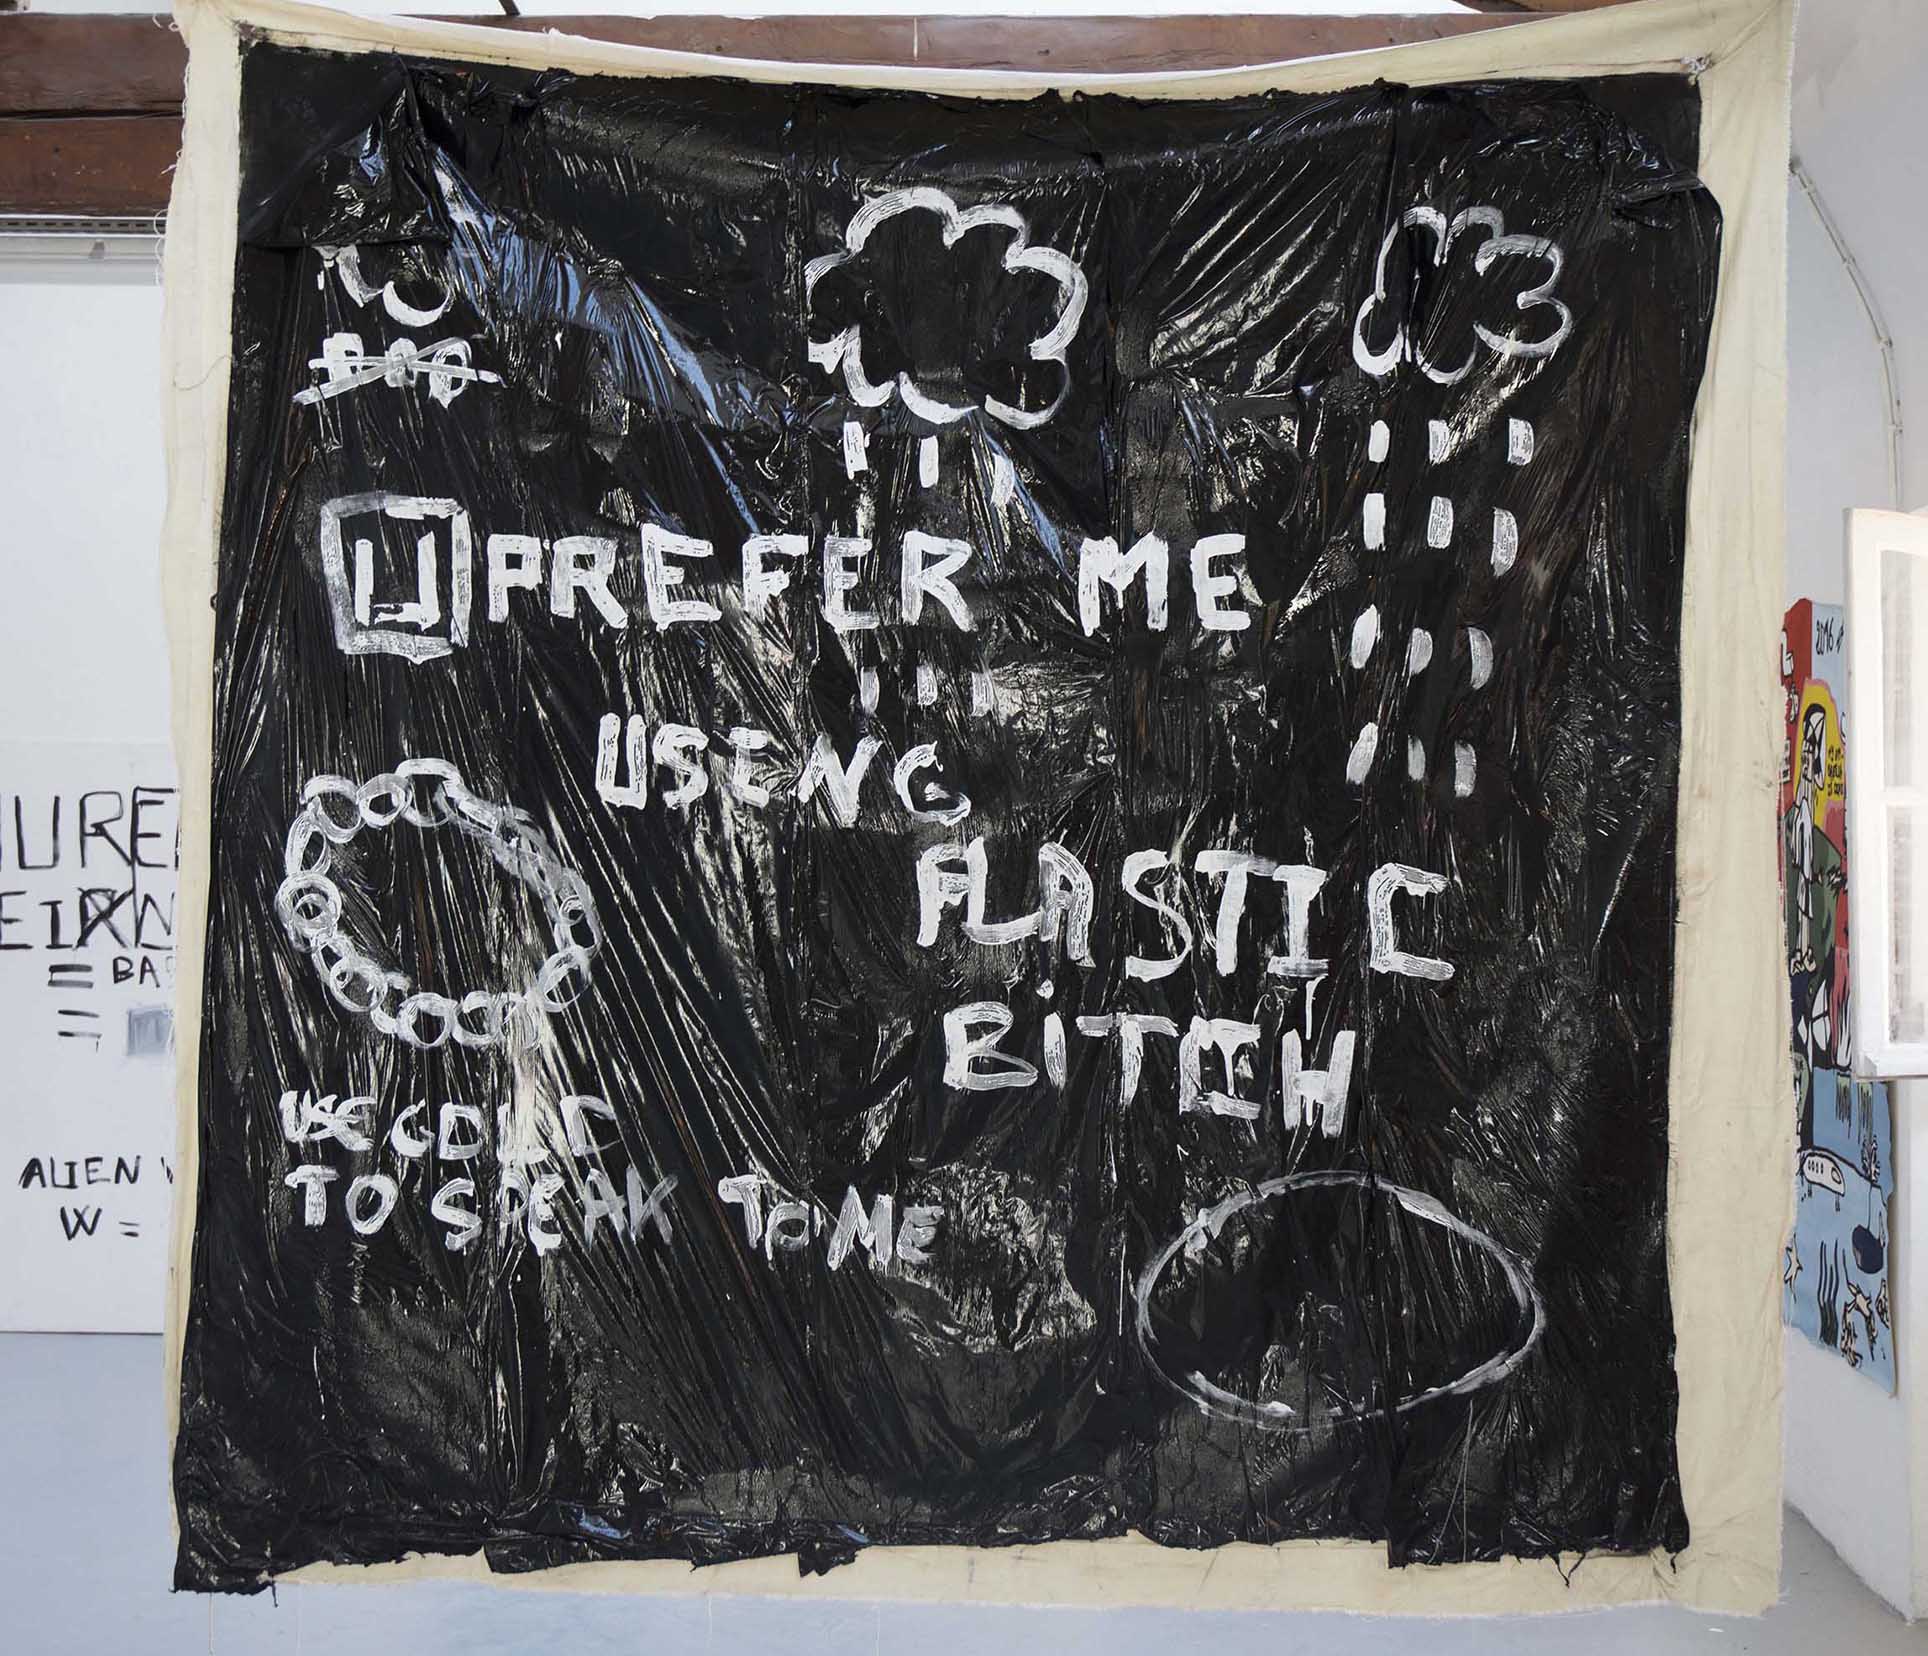 U PREFER ME
USING
PLASTIC
BiTCH
USE GOLD
TO SPEAK TO ME
= BA
=
ALIEN
W =
2016